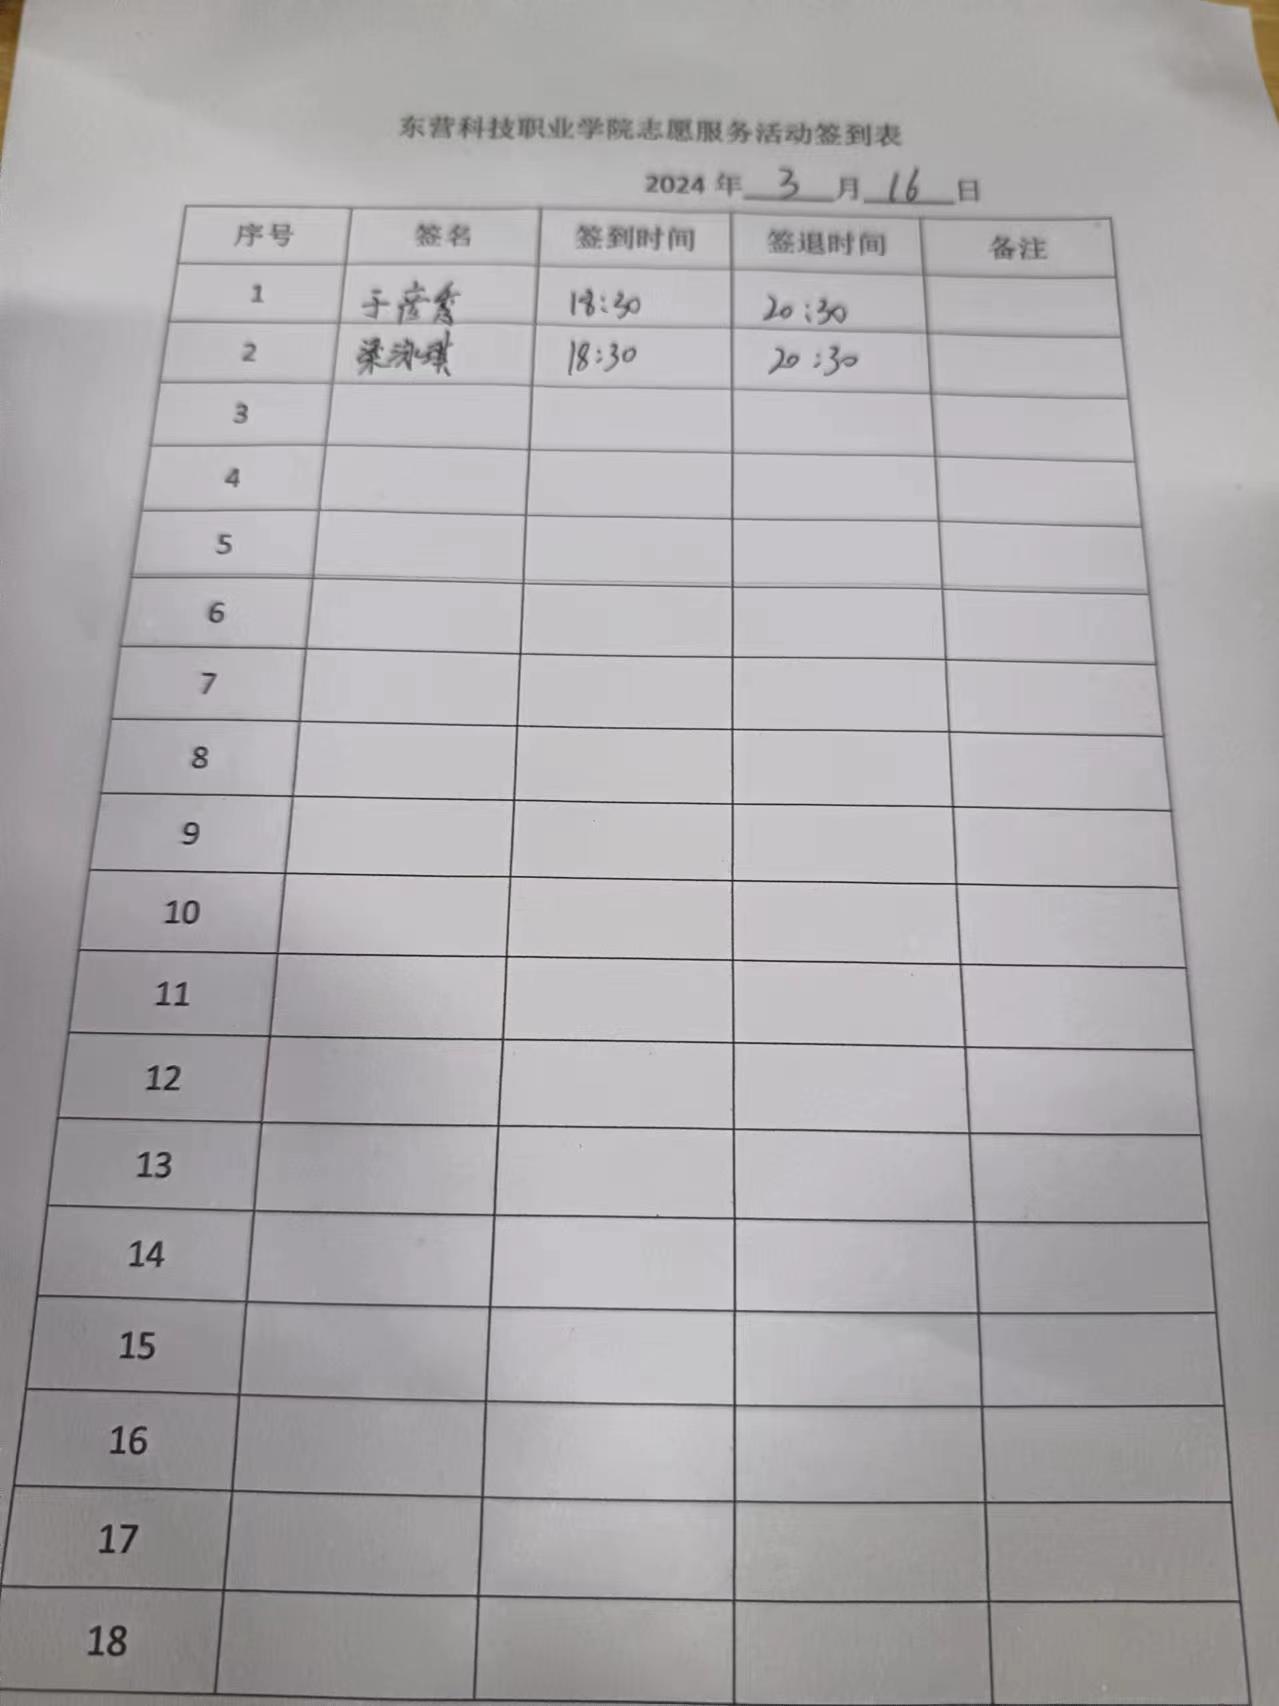 东营科技职业学院志愿服务活动签到表
2024 年 3 月 16 日
序号 签名 签到时间 签退时间 备注
1 于彦秀 18:30 20:30
2 梁泳琪 18:30 20:30
3
4
5
6
7
8
9
10
11
12
13
14
15
16
17
18